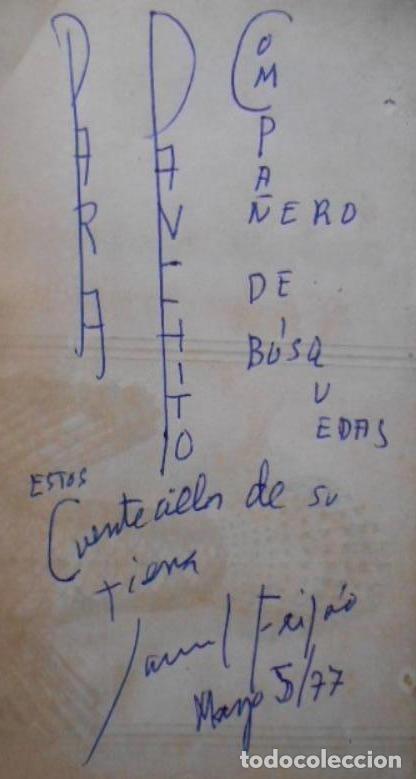 PARA
DAVECHITO
COMPAÑERO
DE
BÚSQUEDAS
ESTOS
Cuentecillos de su
tierra
Samuel Feijóo
Mayo 5/77
todocoleccion.net